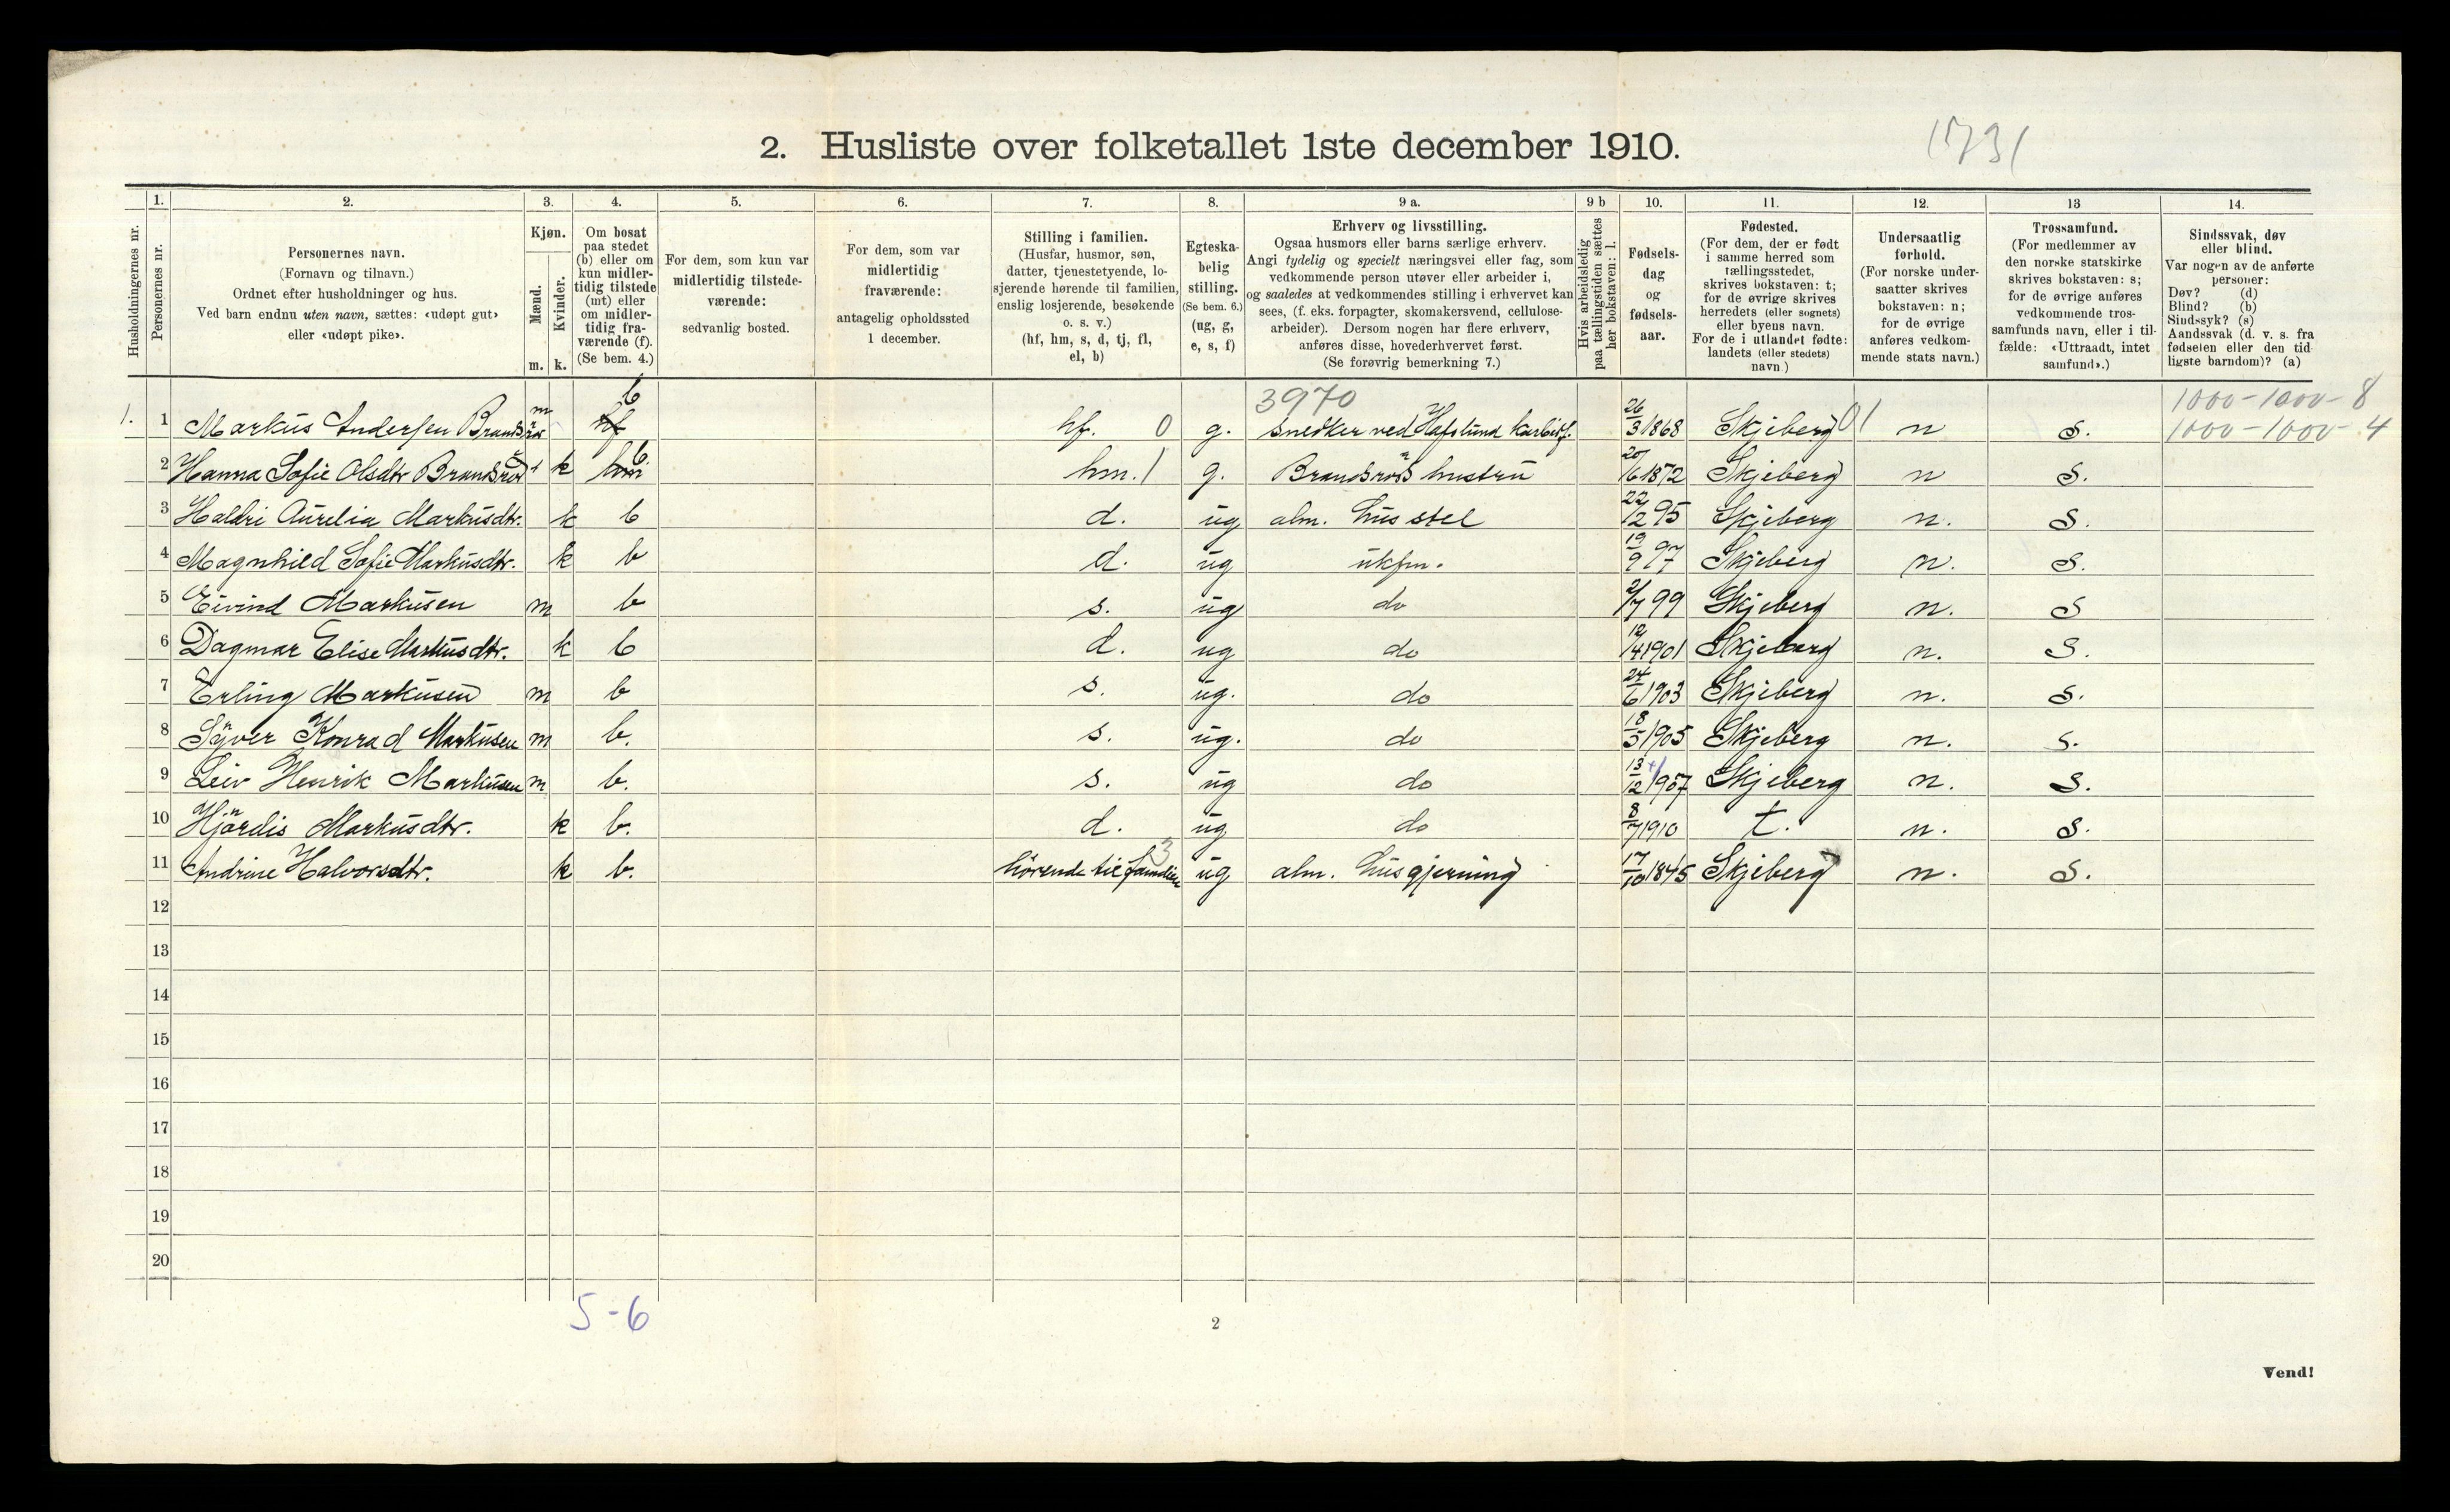 2. Husliste over folketallet 1ste december 1910.
1731
Husholdningernes nr.
1.
Personernes nr.
2.
Personernes navn.
(Fornavn og tilnavn.)
Ordnet efter husholdninger og hus.
Ved barn endnu uten navn, sættes: «udøpt gut»
eller «udøpt pike».
3.
Kjøn.
Mænd.
Kvinder.
m. k.
4.
Om bosat
paa stedet
(b) eller om
kun midler-
tidig tilstede
(mt) eller
om midler-
tidig fra-
værende (f).
(Se bem. 4.)
5.
For dem, som kun var
midlertidig tilstede-
værende:
sedvanlig bosted.
6.
For dem, som var
midlertidig
fraværende:
antagelig opholdssted
1 december.
7.
Stilling i familien.
(Husfar, husmor, søn,
datter, tjenestetyende, lo-
sjerende hørende til familien,
enslig losjerende, besøkende
o. s. v.)
(hf, hm, s, d, tj, fl,
el, b)
8.
Egteska-
belig
stilling.
(Se bem. 6.)
(ug, g,
e, s, f)
9 a.
Erhverv og livsstilling.
Ogsaa husmors eller barns særlige erhverv.
Angi tydelig og specielt næringsvei eller fag, som
vedkommende person utøver eller arbeider i,
og saaledes at vedkommendes stilling i erhvervet kan
sees, (f. eks. forpagter, skomakersvend, cellulose-
arbeider). Dersom nogen har flere erhverv,
anføres disse, hovederhvervet først.
(Se forøvrig bemerkning 7.)
9 b
Hvis arbeidsledig
paa tællingstiden sættes
her bokstaven: l.
10.
Fødsels-
dag
og
fødsels-
aar.
11.
Fødested.
(For dem, der er født
i samme herred som
tællingsstedet,
skrives bokstaven: t;
for de øvrige skrives
herredets (eller sognets)
eller byens navn.
For de i utlandet fødte:
landets (eller stedets)
navn.)
12.
Undersaatlig
forhold.
(For norske under-
saatter skrives
bokstaven: n;
for de øvrige
anføres vedkom-
mende stats navn.)
13
Trossamfund.
(For medlemmer av
den norske statskirke
skrives bokstaven: s;
for de øvrige anføres
vedkommende tros-
samfunds navn, eller i til-
fælde: «Uttraadt, intet
samfund».)
14.
Sindssvak, døv
eller blind.
Var nogen av de anførte
personer:
Døv? (d)
Blind? (b)
Sindssyk? (s)
Aandssvak (d. v. s. fra
fødselen eller den tid-
ligste barndom)? (a)
3970
1000-1000-8
1. 1 Markus Andersen Brandsrød m hf b hf. 0 g. snedker ved Hafslund karbidf. 26/3 1868 Skjeberg 01 n s. 1000-1000-4
2 Hanna Sofie Olsdtr Brandsrød k hm b hm. 1 g. Brandsrøds hustru 20/6 1872 Skjeberg n s.
3 Haldri Aurelia Markusdtr. k b d. ug alm. husstel 22/2 95 Skjeberg n. s.
4 Magnhild Sofie Markusdtr. k b d. ug ukfm. 19/9 97 Skjeberg n. s.
5 Eivind Markusen m b s. ug do 2/7 99 Skjeberg n. s
6 Dagmar Elise Markusdtr. k b d. ug do 12/4 1901 Skjeberg n. s.
7 Erling Markusen m b s. ug. do 24/6 1903 Skjeberg n. s.
8 Syver Konrad Markusen m b. s. ug. do 18/5 1905 Skjeberg n. s.
9 Leiv Henrik Markusen m b. s. ug do 13/12 1907 Skjeberg n. s.
10 Hjördis Markusdtr. k b. d. ug do 8/7 1910 t. n. s.
11 Andrine Halvorsdtr. k b. hörende til familien 3 ug alm. husgjerning 17/10 1845 Skjeberg n. s.
12
13
14
15
16
17
18
19
20
5-6
2
Vend!